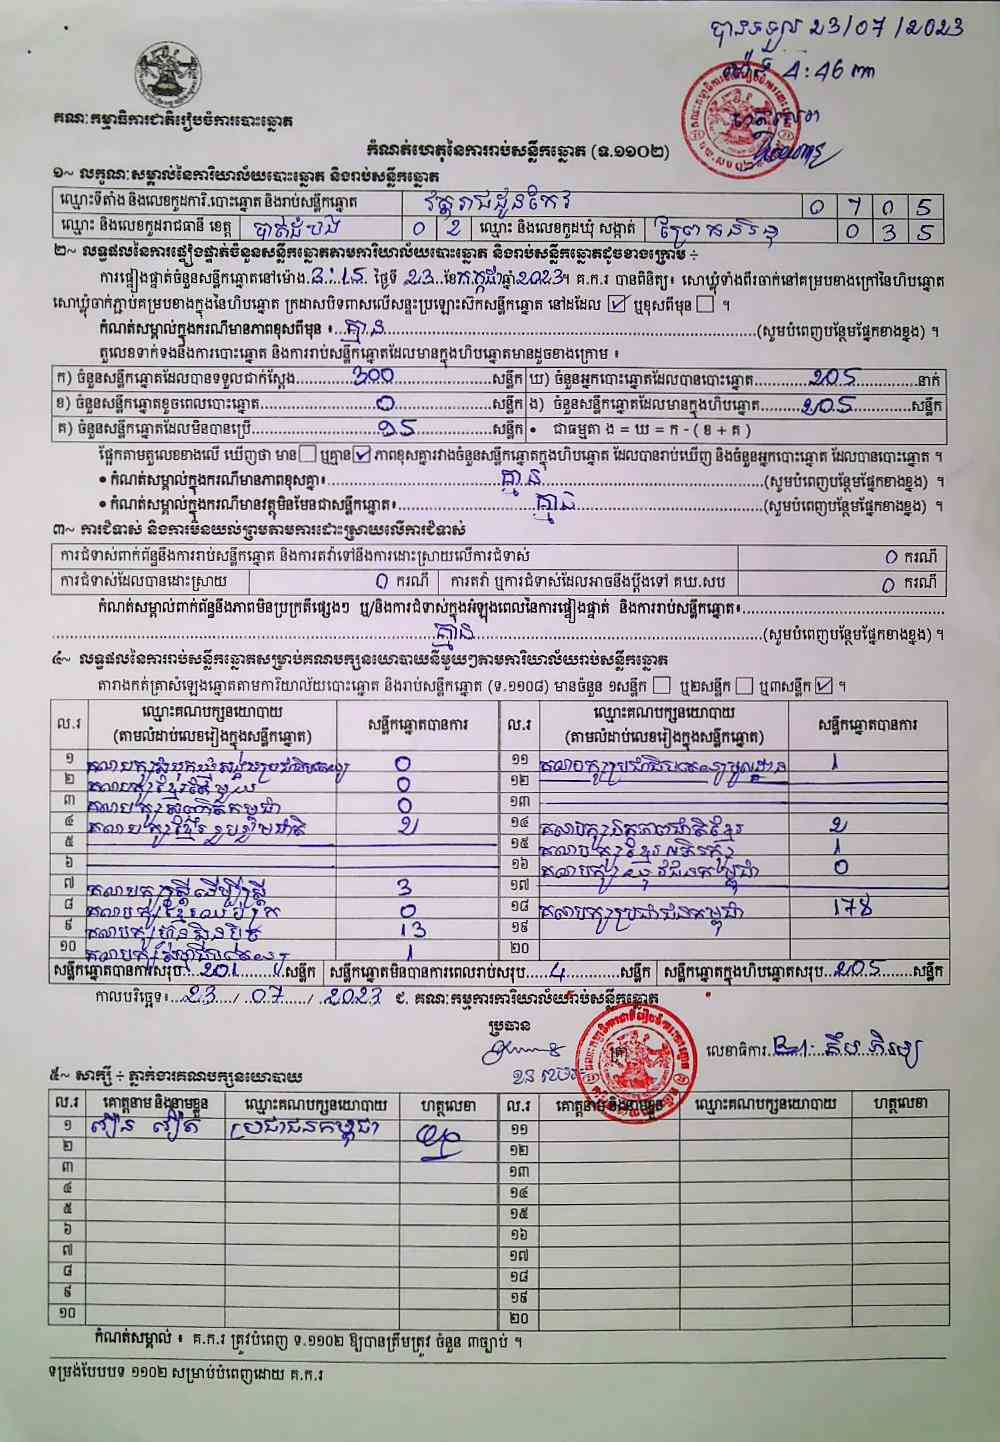 បានទទួល 23/07/2023
ម៉ោង 4:46 nn
គណៈកម្មាធិការជាតិរៀបចំការបោះឆ្នោត
កំណត់ហេតុនៃការរាប់សន្លឹកឆ្នោត (ទ.១១០២)
១~ លក្ខណៈសម្គាល់នៃការិយាល័យបោះឆ្នោត និងរាប់សន្លឹកឆ្នោត
ឈ្មោះទីតាំង និងលេខកូដការិ.បោះឆ្នោត និងរាប់សន្លឹកឆ្នោត វត្តរាជដូនកែវ 0 7 0 5
ឈ្មោះ និងលេខកូដរាជធានី ខេត្ត បាត់ដំបង 0 2 ឈ្មោះ និងលេខកូដឃុំ សង្កាត់ ព្រែកនរិន្ទ 0 3 5
២~ លទ្ធផលនៃការផ្ទៀងផ្ទាត់ចំនួនសន្លឹកឆ្នោតតាមការិយាល័យបោះឆ្នោត និងរាប់សន្លឹកឆ្នោតដូចខាងក្រោម ÷
ការផ្ទៀងផ្ទាត់ចំនួនសន្លឹកឆ្នោតនៅម៉ោង 3:15 ថ្ងៃទី 23 ខែ កក្កដា ឆ្នាំ 2023 ។ គ.ក.រ បានពិនិត្យ៖ សោឃ្លុំទាំងពីរចាក់នៅគម្របខាងក្រៅនៃហិបឆ្នោត
សោឃ្លុំចាក់ភ្ជាប់គម្របខាងក្នុងនៃហិបឆ្នោត ក្រដាសបិទពាសលើសន្ទះប្រឡោះស៊កសន្លឹកឆ្នោត នៅដដែល ☑ ឬខុសពីមុន ☐ ។
កំណត់សម្គាល់ក្នុងករណីមានភាពខុសពីមុន ៖ គ្មាន (សូមបំពេញបន្ថែមផ្នែកខាងខ្នង) ។
តួលេខទាក់ទងនឹងការបោះឆ្នោត និងការរាប់សន្លឹកឆ្នោតដែលមានក្នុងហិបឆ្នោតមានដូចខាងក្រោម ៖
ក) ចំនួនសន្លឹកឆ្នោតដែលបានទទួលជាក់ស្តែង 300 សន្លឹក ឃ) ចំនួនអ្នកបោះឆ្នោតដែលបានបោះឆ្នោត 205 នាក់
ខ) ចំនួនសន្លឹកឆ្នោតខូចពេលបោះឆ្នោត 0 សន្លឹក ង) ចំនួនសន្លឹកឆ្នោតដែលមានក្នុងហិបឆ្នោត 205 សន្លឹក
គ) ចំនួនសន្លឹកឆ្នោតដែលមិនបានប្រើ 95 សន្លឹក • ជាធម្មតា ង = ឃ = ក - ( ខ + គ )
ផ្អែកតាមតួលេខខាងលើ ឃើញថា មាន ☐ ឬគ្មាន ☑ ភាពខុសគ្នារវាងចំនួនសន្លឹកឆ្នោតក្នុងហិបឆ្នោត ដែលបានរាប់ឃើញ និងចំនួនអ្នកបោះឆ្នោត ដែលបានបោះឆ្នោត ។
• កំណត់សម្គាល់ក្នុងករណីមានភាពខុសគ្នា៖ គ្មាន (សូមបំពេញបន្ថែមផ្នែកខាងខ្នង) ។
• កំណត់សម្គាល់ក្នុងករណីមានវត្ថុមិនមែនជាសន្លឹកឆ្នោត៖ គ្មាន (សូមបំពេញបន្ថែមផ្នែកខាងខ្នង) ។
៣~ ការជំទាស់ និងការមិនយល់ព្រមតាមការដោះស្រាយលើការជំទាស់
ការជំទាស់ពាក់ព័ន្ធនឹងការរាប់សន្លឹកឆ្នោត និងការតវ៉ាទៅនឹងការដោះស្រាយលើការជំទាស់ 0 ករណី
ការជំទាស់ដែលបានដោះស្រាយ 0 ករណី ការតវ៉ា ឬការជំទាស់ដែលអាចនឹងប្តឹងទៅ គឃ.សប 0 ករណី
កំណត់សម្គាល់ពាក់ព័ន្ធនឹងភាពមិនប្រក្រតីផ្សេងៗ ឬ/និងការជំទាស់ក្នុងអំឡុងពេលនៃការផ្ទៀងផ្ទាត់ និងការរាប់សន្លឹកឆ្នោត៖
គ្មាន (សូមបំពេញបន្ថែមផ្នែកខាងខ្នង) ។
៤~ លទ្ធផលនៃការរាប់សន្លឹកឆ្នោតសម្រាប់គណបក្សនយោបាយនីមួយៗតាមការិយាល័យរាប់សន្លឹកឆ្នោត
តារាងកត់ត្រាសំឡេងឆ្នោតតាមការិយាល័យបោះឆ្នោត និងរាប់សន្លឹកឆ្នោត (ទ.១១០៨) មានចំនួន ១សន្លឹក ☐ ឬ២សន្លឹក ☐ ឬ៣សន្លឹក ☑ ។
ល.រ ឈ្មោះគណបក្សនយោបាយ (តាមលំដាប់លេខរៀងក្នុងសន្លឹកឆ្នោត) សន្លឹកឆ្នោតបានការ ល.រ ឈ្មោះគណបក្សនយោបាយ (តាមលំដាប់លេខរៀងក្នុងសន្លឹកឆ្នោត) សន្លឹកឆ្នោតបានការ
១ គណបក្សសំបុកឃ្មុំសង្គមប្រជាធិបតេយ្យ 0 ១១ គណបក្សប្រជាធិបតេយ្យមូលដ្ឋាន 1
២ គណបក្សខ្មែរតែមួយ 0 ១២
៣ គណបក្ស កម្ពុជា 0 ១៣
៤ គណបក្សខ្មែររួបរួមជាតិ 2 ១៤ គណបក្សឯកភាពជាតិខ្មែរ 2
៥ ១៥ គណបក្សខ្មែរអភិរក្ស 1
៦ ១៦ គណបក្ស កម្ពុជា 0
៧ គណបក្សស្ត្រីដើម្បីស្ត្រី 3 ១៧
៨ គណបក្សខ្មែរឈប់ក្រ 0 ១៨ គណបក្សប្រជាជនកម្ពុជា 178
៩ គណបក្សហ្វ៊ុនស៊ិនប៉ិច 13 ១៩
១០ គណបក្ស 1 ២០
សន្លឹកឆ្នោតបានការសរុប 201 សន្លឹក សន្លឹកឆ្នោតមិនបានការពេលរាប់សរុប 4 សន្លឹក សន្លឹកឆ្នោតក្នុងហិបឆ្នោតសរុប 205 សន្លឹក
កាលបរិច្ឆេទ៖ 23 / 07 / 2023 ជ. គណៈកម្មការការិយាល័យរាប់សន្លឹកឆ្នោត
ប្រធាន
ត្រា លេខាធិការ
៥~ សាក្សី ÷ ភ្នាក់ងារគណបក្សនយោបាយ
ល.រ គោត្តនាម និងនាមខ្លួន ឈ្មោះគណបក្សនយោបាយ ហត្ថលេខា ល.រ គោត្តនាម និងនាមខ្លួន ឈ្មោះគណបក្សនយោបាយ ហត្ថលេខា
១ វឿន វឿត ប្រជាជនកម្ពុជា ១១
២ ១២
៣ ១៣
៤ ១៤
៥ ១៥
៦ ១៦
៧ ១៧
៨ ១៨
៩ ១៩
១០ ២០
កំណត់សម្គាល់ ៖ គ.ក.រ ត្រូវបំពេញ ទ.១១០២ ឱ្យបានត្រឹមត្រូវ ចំនួន ៣ច្បាប់ ។
ទម្រង់បែបបទ ១១០២ សម្រាប់បំពេញដោយ គ.ក.រ